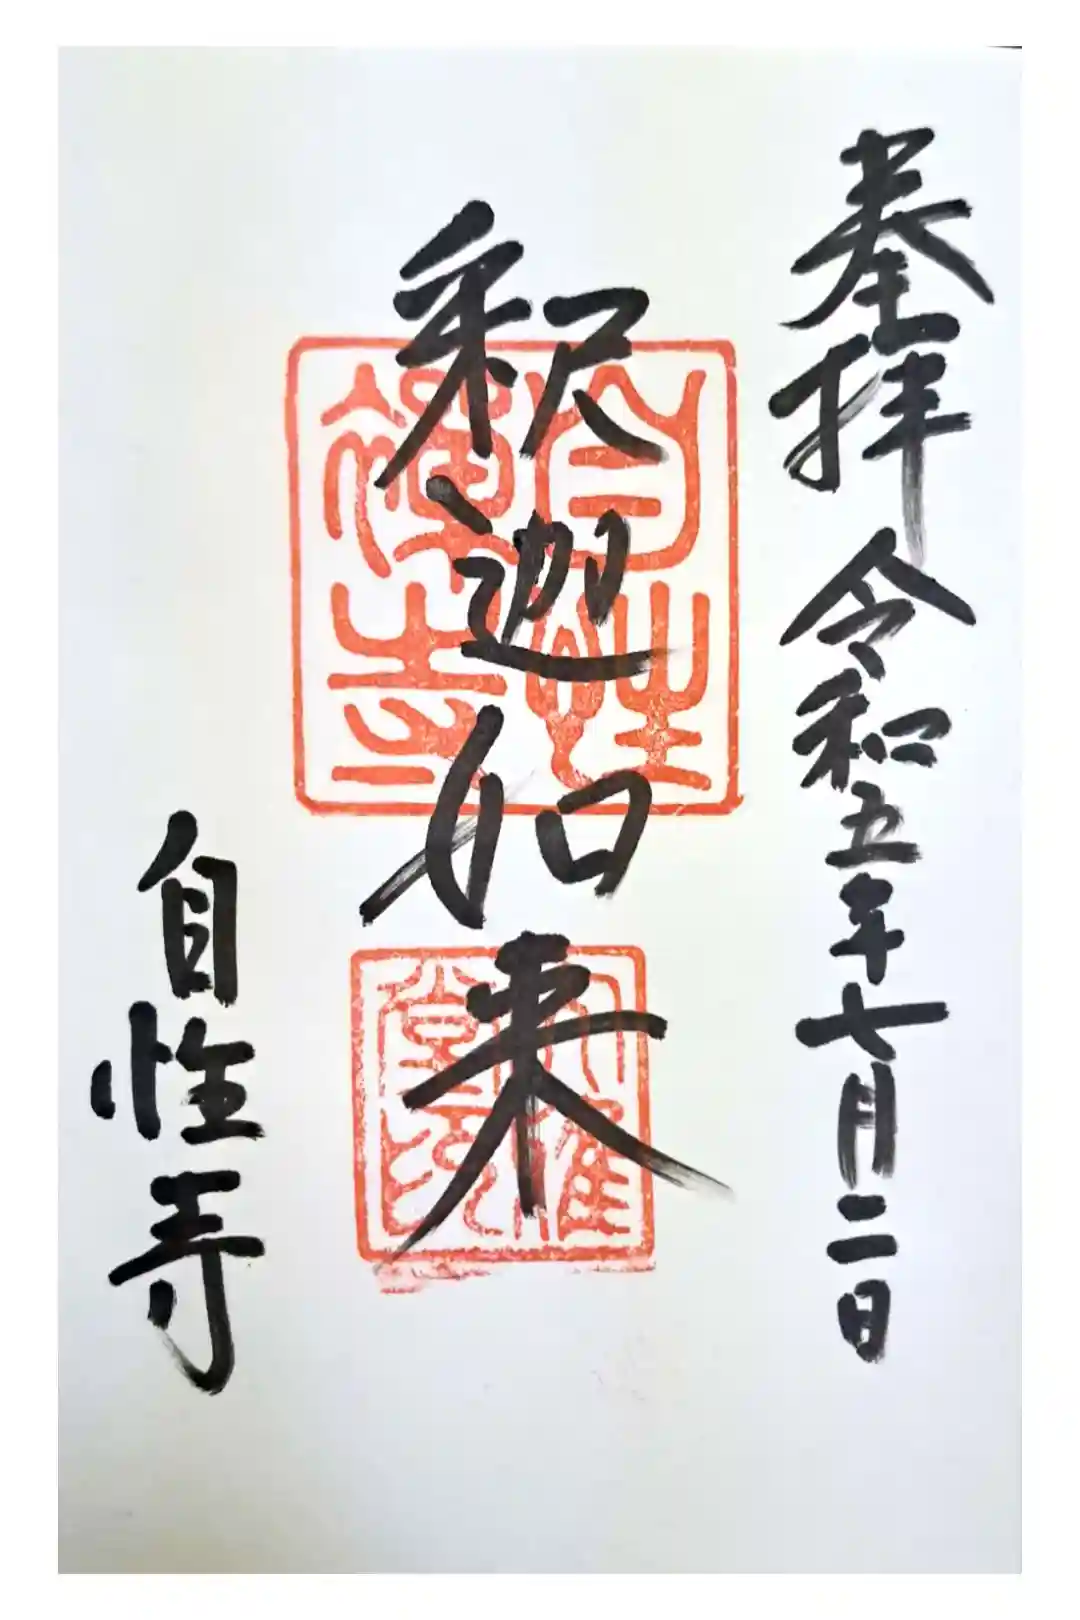 奉拝 令和五年七月二日
釈迦如来
自性禅寺
自性寺